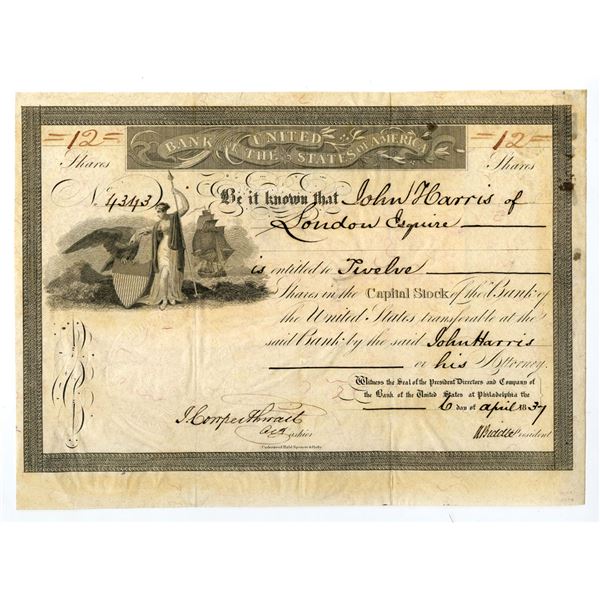 =12= BANK OF THE UNITED STATES OF AMERICA =12=
Shares Shares
No. 4343 Be it known that John Harris of
London Esquire
is entitled to Twelve
Shares in the Capital Stock of the Bank of
the United States transferable at the
said Bank by the said John Harris
or his Attorney
Witness the Seal of the President Directors and Company of
the Bank of the United States at Philadelphia the
6 day of April 1837
J. Cowperthwait
Cashier
N Biddle President
Underwood Bald Spencer & Hufty